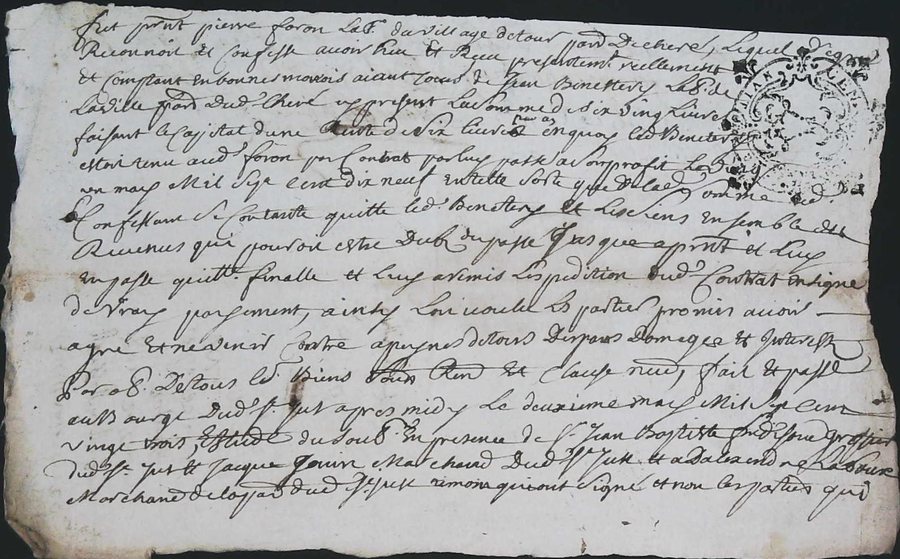 fut pnt pierre foron Lab. du village de tour par De chere, Lequel de gré
Reconnoit et Confesse avoir Heu et Receu presentement reellement
et Comptant en bonnes monois aiant Cours de Jean Benettery Lab. de
La ville par dud. Cheré cy present La somme de six vingt Livres
faisant le Capital dune Rente de six Livres en quoy led. Benetery
estoit tenu aud. foron par Contrat par luy passé a son profit Le
en may Mil Sept Cent dix neuf En telle sorte que de lad. Somme led.
Confessant Se Contante quitte led. Benettery et Les Siens Ensemble des
Revenus qui pouvoit estre Dub du passé Jusque a pnt et Luy
En passe quitte finalle et Luy a remis L'expedition dud. Contrat En signe
de Vray payement, ainsy L'ont voulu Les parties promis avoir
agré Et ne venir Contre a peynes de tous Despans Domages et Interests
Par ob. De tous Ld. Biens Ren et Clause neud, fait et passé
au Bourg Dud. St. Just apres midy Le deuxieme may Mil Sept Cent
vingt trois, Estude du soub. En presence de Sr. Jean Baptiste
dud. St. Just Et Jacque Marchand Dud. St. Just et a
Marchand de la par dud. St. Just temoins qui ont signé et non les parties qui